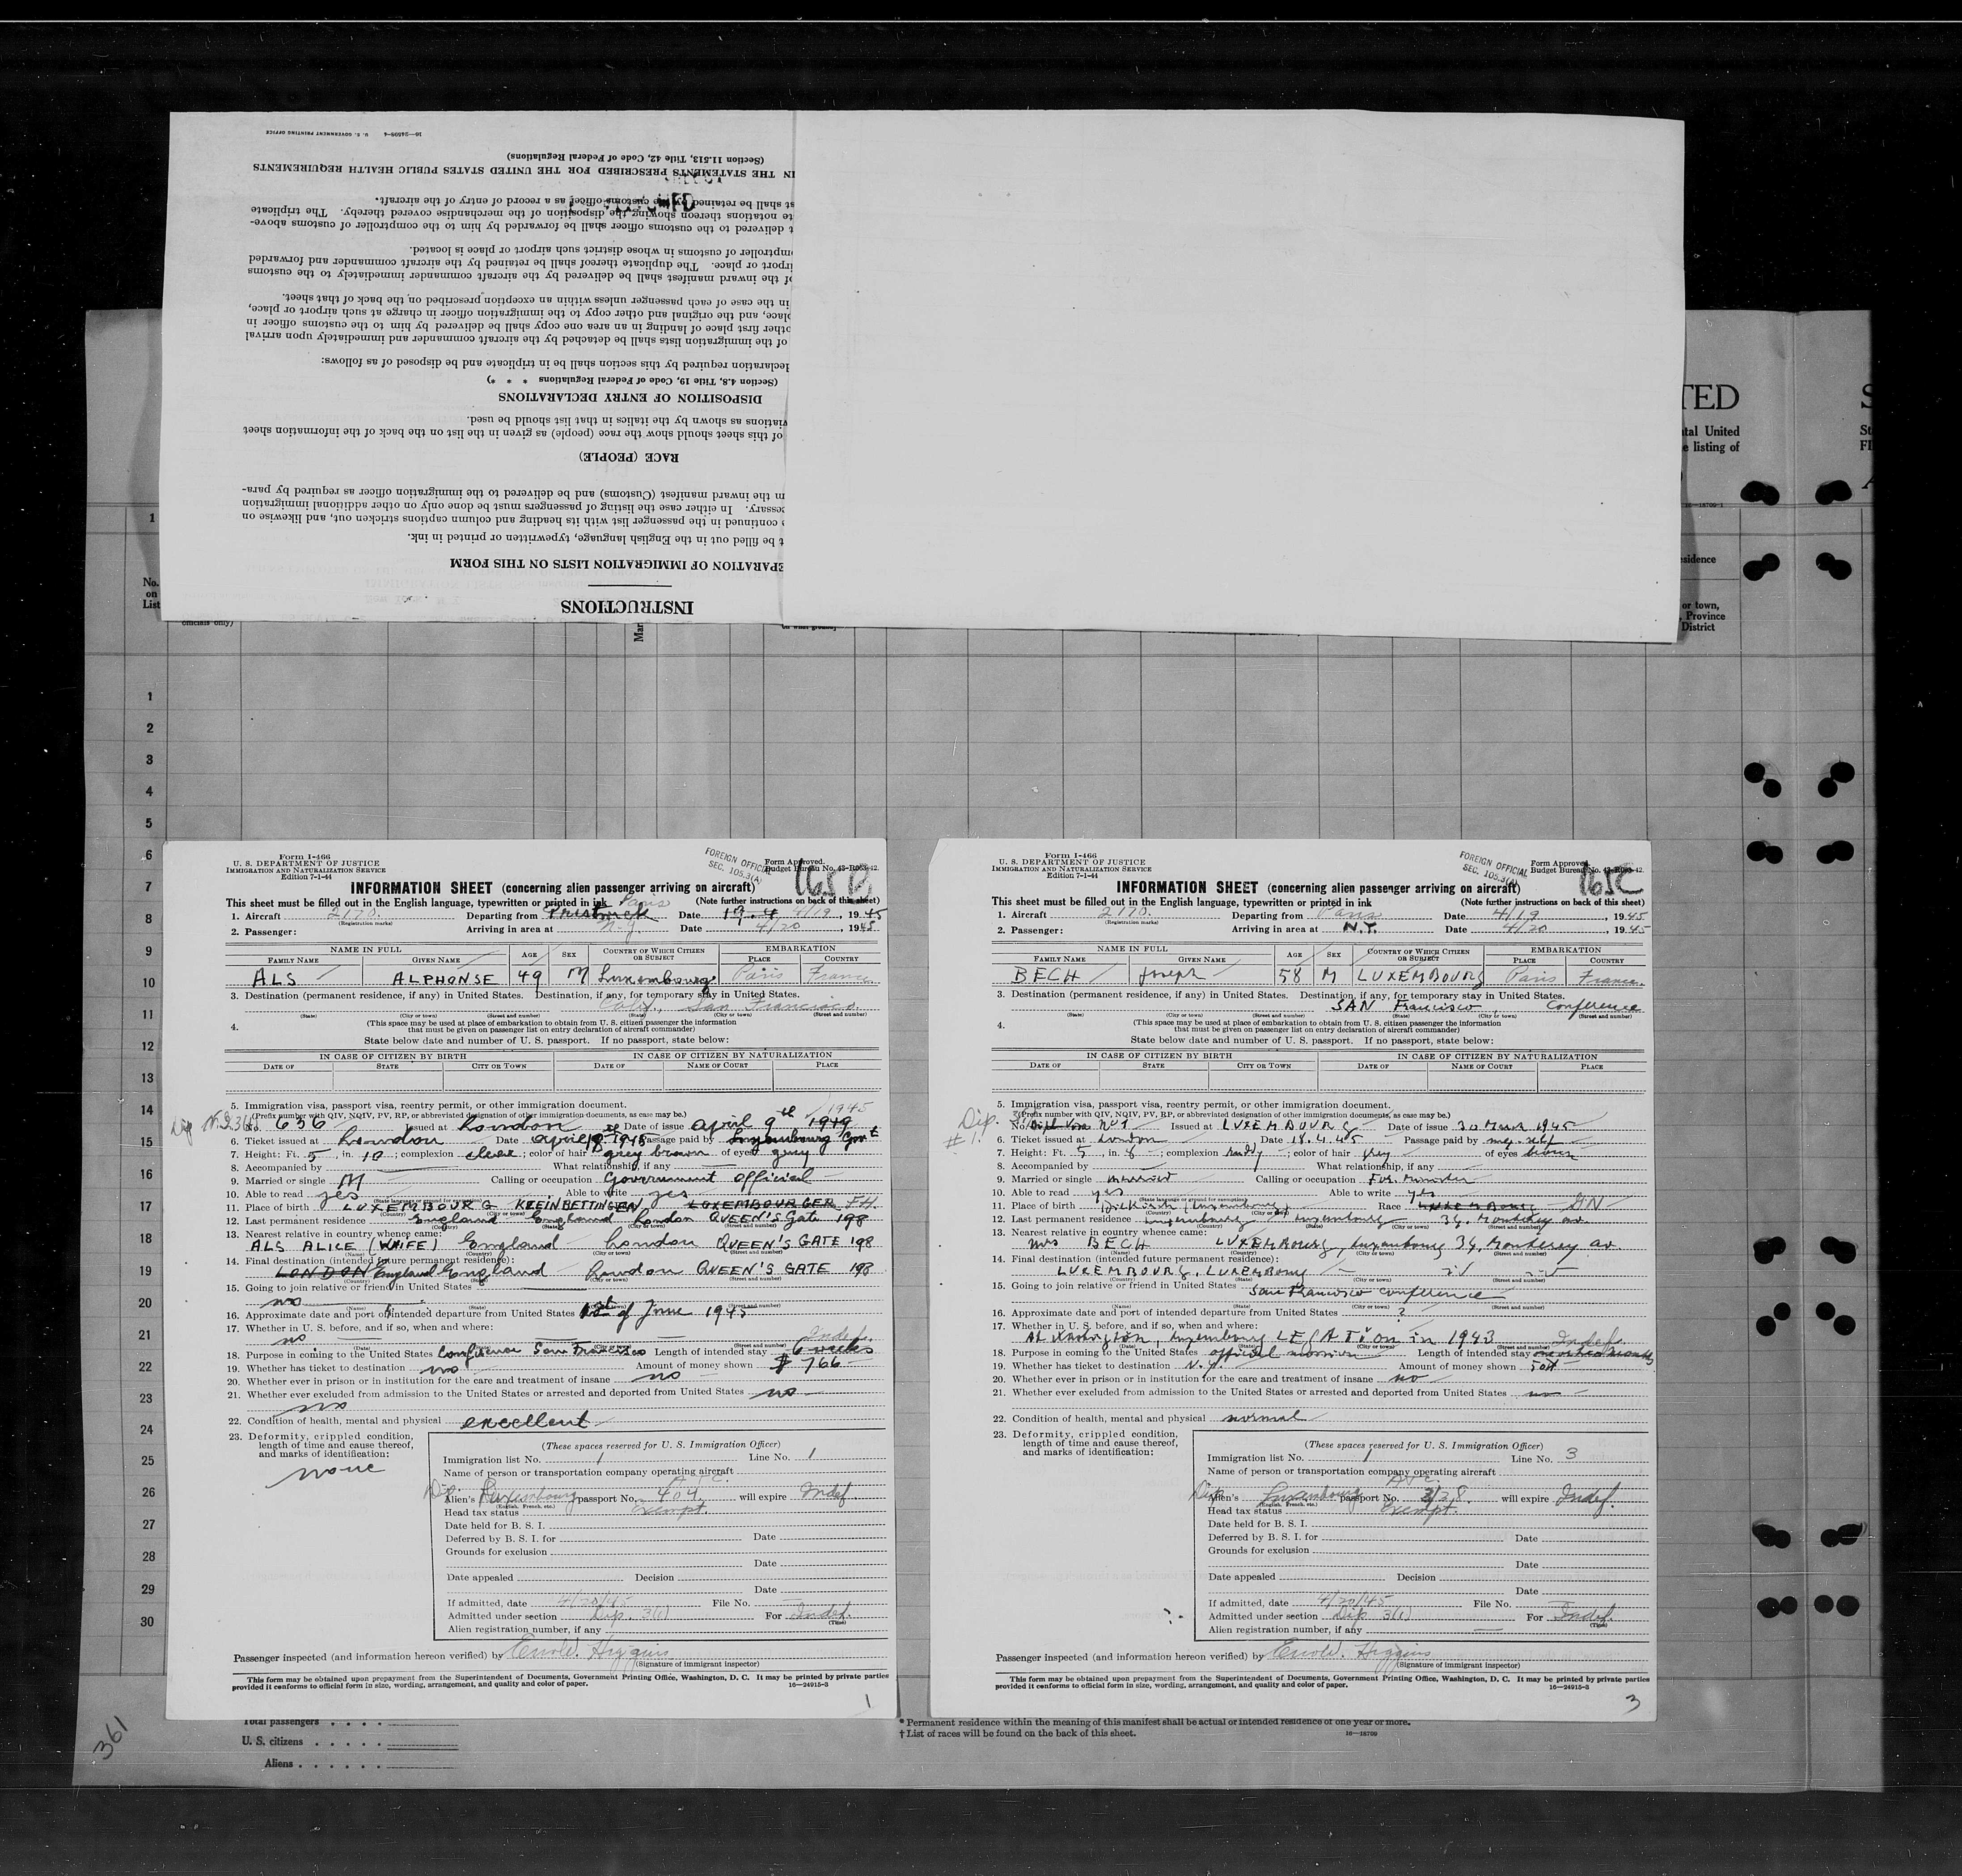 INSTRUCTIONS
EPARATION OF IMMIGRATION LISTS ON THIS FORM
t be filled out in the English language, typewritten or printed in ink.
continued in the passenger list with its heading and column captions stricken out, and likewise on
cessary. In either case the listing of passengers must be done only on other additional immigration
m the inward manifest (Customs) and be delivered to the immigration officer as required by para-
RACE (PEOPLE)
of this sheet should show the race (people) as given in the list on the back of the information sheet
viations as shown by the italics in that list should be used.
DISPOSITION OF ENTRY DECLARATIONS
(Section 4.8, Title 19, Code of Federal Regulations * * *)
declaration required by this section shall be in triplicate and be disposed of as follows:
of the immigration lists shall be detached by the aircraft commander and immediately upon arrival
other first place of landing in an area one copy shall be delivered by him to the customs officer in
place, and the original and other copy to the immigration officer in charge at such airport or place,
in the case of each passenger unless within an exception prescribed on the back of that sheet.
of the inward manifest shall be delivered by the aircraft commander immediately to the customs
irport or place. The duplicate thereof shall be retained by the aircraft commander and forwarded
mptroller of customs in whose district such airport or place is located.
t delivered to the customs officer shall be forwarded by him to the comptroller of customs above-
te notations thereon showing the disposition of the merchandise covered thereby. The triplicate
st shall be retained by the customs officer as a record of entry of the aircraft.
IN THE STATEMENTS PRESCRIBED FOR THE UNITED STATES PUBLIC HEALTH REQUIREMENTS
(Section 11.513, Title 42, Code of Federal Regulations)
16—24598-4 U. S. GOVERNMENT PRINTING OFFICE
TED
tal United
e listing of
16—18709-1
sidence
or town,
Province
District
1
No.
on
List
officials only)
Mar
1
2
3
4
5
6
7
8
9
10
11
12
13
14
15
16
17
18
19
20
21
22
23
24
25
26
27
28
29
30
Form I-466
U. S. DEPARTMENT OF JUSTICE
IMMIGRATION AND NATURALIZATION SERVICE
Edition 7-1-44
FOREIGN OFFICIAL
SEC. 105.3(A)
Form Approved.
Budget Bureau No. 43-R063-42.
165 B
INFORMATION SHEET (concerning alien passenger arriving on aircraft)
This sheet must be filled out in the English language, typewritten or printed in ink (Note further instructions on back of this sheet)
1. Aircraft 2170. Departing from Prestwick Paris Date 19.4 4/19, 1945
(Registration marks)
2. Passenger: Arriving in area at N.Y. Date 4/20, 1945
NAME IN FULL AGE SEX COUNTRY OF WHICH CITIZEN OR SUBJECT EMBARKATION
FAMILY NAME GIVEN NAME PLACE COUNTRY
ALS ALPHONSE 49 M Luxembourg Paris France
3. Destination (permanent residence, if any) in United States. Destination, if any, for temporary stay in United States.
Calif., San Francisco.
(State) (City or town) (Street and number) (State) (City or town) (Street and number)
4. (This space may be used at place of embarkation to obtain from U. S. citizen passenger the information
that must be given on passenger list on entry declaration of aircraft commander)
State below date and number of U. S. passport. If no passport, state below:
IN CASE OF CITIZEN BY BIRTH IN CASE OF CITIZEN BY NATURALIZATION
DATE OF STATE CITY OR TOWN DATE OF NAME OF COURT PLACE
5. Immigration visa, passport visa, reentry permit, or other immigration document.
(Prefix number with QIV, NQIV, PV, RP, or abbreviated designation of other immigration documents, as case may be.) 1945
No. 636 Issued at London Date of issue April 9th 1949
6. Ticket issued at London Date April 18 1945 Passage paid by Luxembourg Govt
7. Height: Ft. 5, in. 10; complexion clear; color of hair grey brown of eyes grey
8. Accompanied by What relationship, if any
9. Married or single M Calling or occupation Government official
10. Able to read yes Able to write yes
(State language or ground for exemption)
11. Place of birth LUXEMBOURG KLEINBETTINGEN LUXEMBOURGER FH.
12. Last permanent residence England England London QUEEN'S Gate 198
13. Nearest relative in country whence came:
ALS ALICE (WHIFE) England London QUEEN'S GATE 198
14. Final destination (intended future permanent residence):
LONDON England England London QUEEN'S GATE 198
15. Going to join relative or friend in United States
no
16. Approximate date and port of intended departure from United States 1st of June 1945
17. Whether in U. S. before, and if so, when and where:
no Indef.
18. Purpose in coming to the United States Conference San Francisco Length of intended stay 6 weeks
19. Whether has ticket to destination no Amount of money shown $ 766
20. Whether ever in prison or in institution for the care and treatment of insane no
21. Whether ever excluded from admission to the United States or arrested and deported from United States no
no
22. Condition of health, mental and physical excellent
23. Deformity, crippled condition,
length of time and cause thereof,
and marks of identification:
none
(These spaces reserved for U. S. Immigration Officer)
Immigration list No. 1 Line No. 1
Name of person or transportation company operating aircraft A.T.C.
Dip. Alien's Luxembourg passport No. 404 will expire Indef.
(English, French, etc.)
Head tax status Exempt.
Date held for B. S. I.
Deferred by B. S. I. for Date
Grounds for exclusion
Date
Date appealed Decision
Date
If admitted, date 4/20/45 File No.
Admitted under section Dip. 3(1) For Indef.
(Time)
Alien registration number, if any
Passenger inspected (and information hereon verified) by Higgins
(Signature of immigrant inspector)
This form may be obtained upon prepayment from the Superintendent of Documents, Government Printing Office, Washington, D. C. It may be printed by private parties
provided it conforms to official form in size, wording, arrangement, and quality and color of paper. 16—24915-3
1
Form I-466
U. S. DEPARTMENT OF JUSTICE
IMMIGRATION AND NATURALIZATION SERVICE
Edition 7-1-44
FOREIGN OFFICIAL
SEC. 105.3(A)
Form Approved.
Budget Bureau No. 43-R063-42.
165C
INFORMATION SHEET (concerning alien passenger arriving on aircraft)
This sheet must be filled out in the English language, typewritten or printed in ink (Note further instructions on back of this sheet)
1. Aircraft 2170. Departing from Paris Date 4/19, 1945
(Registration marks)
2. Passenger: Arriving in area at N.Y. Date 4/20, 1945
NAME IN FULL AGE SEX COUNTRY OF WHICH CITIZEN OR SUBJECT EMBARKATION
FAMILY NAME GIVEN NAME PLACE COUNTRY
BECH Joseph 58 M LUXEMBOURG Paris France.
3. Destination (permanent residence, if any) in United States. Destination, if any, for temporary stay in United States.
SAN Francisco, Conference
(State) (City or town) (Street and number) (State) (City or town) (Street and number)
4. (This space may be used at place of embarkation to obtain from U. S. citizen passenger the information
that must be given on passenger list on entry declaration of aircraft commander)
State below date and number of U. S. passport. If no passport, state below:
IN CASE OF CITIZEN BY BIRTH IN CASE OF CITIZEN BY NATURALIZATION
DATE OF STATE CITY OR TOWN DATE OF NAME OF COURT PLACE
5. Immigration visa, passport visa, reentry permit, or other immigration document.
(Prefix number with QIV, NQIV, PV, RP, or abbreviated designation of other immigration documents, as case may be.)
Dip. #1. No. Dipl Visa No 1 Issued at LUXEMBOURG Date of issue 30 March 1945
6. Ticket issued at London Date 18.4.45 Passage paid by my-self
7. Height: Ft. 5, in. 8; complexion ruddy; color of hair grey of eyes brown
8. Accompanied by What relationship, if any
9. Married or single married Calling or occupation For. Minister
10. Able to read yes Able to write yes
(State language or ground for exemption)
11. Place of birth Diekirch (Luxembourg) Race Luxembourg GN
12. Last permanent residence Luxembourg Luxembourg 34, Monterey av.
13. Nearest relative in country whence came:
Mrs BECH LUXEMBOURG, Luxembourg 34, Monterey av.
14. Final destination (intended future permanent residence):
LUXEMBOURG, LUXEMBourg
15. Going to join relative or friend in United States
San Francisco conference
16. Approximate date and port of intended departure from United States ?
17. Whether in U. S. before, and if so, when and where:
At Washington, Luxembourg LEGATION in 1943 Indef.
18. Purpose in coming to the United States official mission Length of intended stay one or two months
19. Whether has ticket to destination N.Y. Amount of money shown
20. Whether ever in prison or in institution for the care and treatment of insane no
21. Whether ever excluded from admission to the United States or arrested and deported from United States no
22. Condition of health, mental and physical normal
23. Deformity, crippled condition,
length of time and cause thereof,
and marks of identification:
(These spaces reserved for U. S. Immigration Officer)
Immigration list No. 1 Line No. 3
Name of person or transportation company operating aircraft
A.T.C.
Dip. Alien's Luxembourg passport No. 338. will expire Indef.
(English, French, etc.)
Head tax status Exempt.
Date held for B. S. I.
Deferred by B. S. I. for Date
Grounds for exclusion
Date
Date appealed Decision
Date
If admitted, date 4/20/45 File No.
Admitted under section Dip. 3(1) For Indef.
(Time)
Alien registration number, if any
Passenger inspected (and information hereon verified) by Higgins
(Signature of immigrant inspector)
This form may be obtained upon prepayment from the Superintendent of Documents, Government Printing Office, Washington, D. C. It may be printed by private parties
provided it conforms to official form in size, wording, arrangement, and quality and color of paper. 16—24915-3
3
361
Total passengers
U. S. citizens
Aliens
* Permanent residence within the meaning of this manifest shall be actual or intended residence of one year or more.
† List of races will be found on the back of this sheet. 16—18709